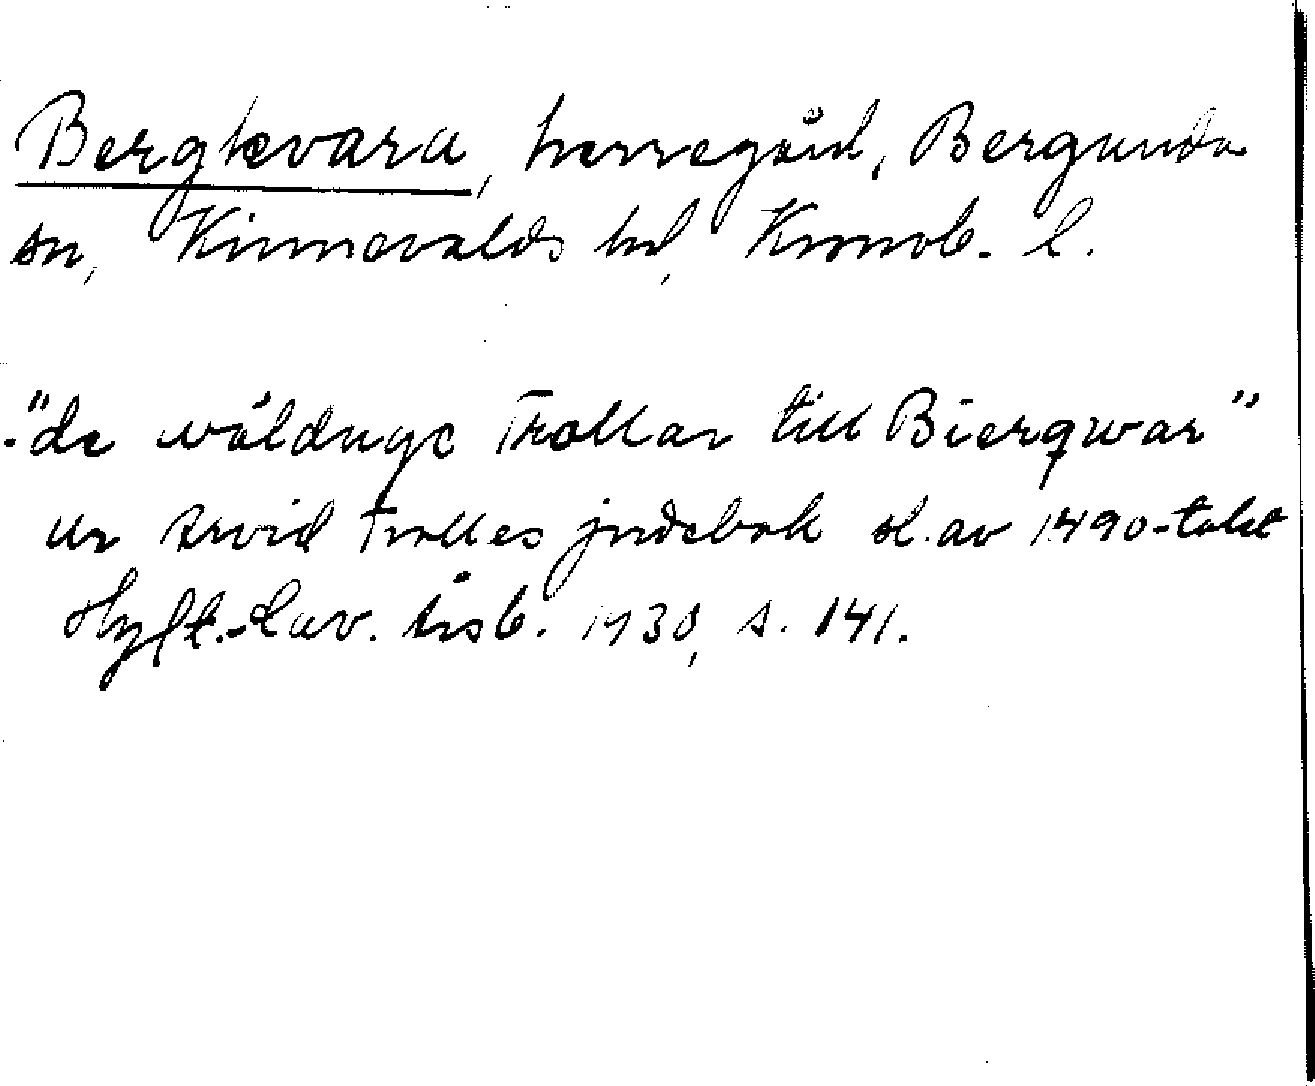 Bergkvara, herregård, Bergunda
sn, Kinnevalds hd, Kronob. l.
"de wälduge Trollar till Bierqwar"
ur Arvid Trolles jordebok sl. av 1490-talet
Hylt.-Cav. årsb. 1930, s. 141.